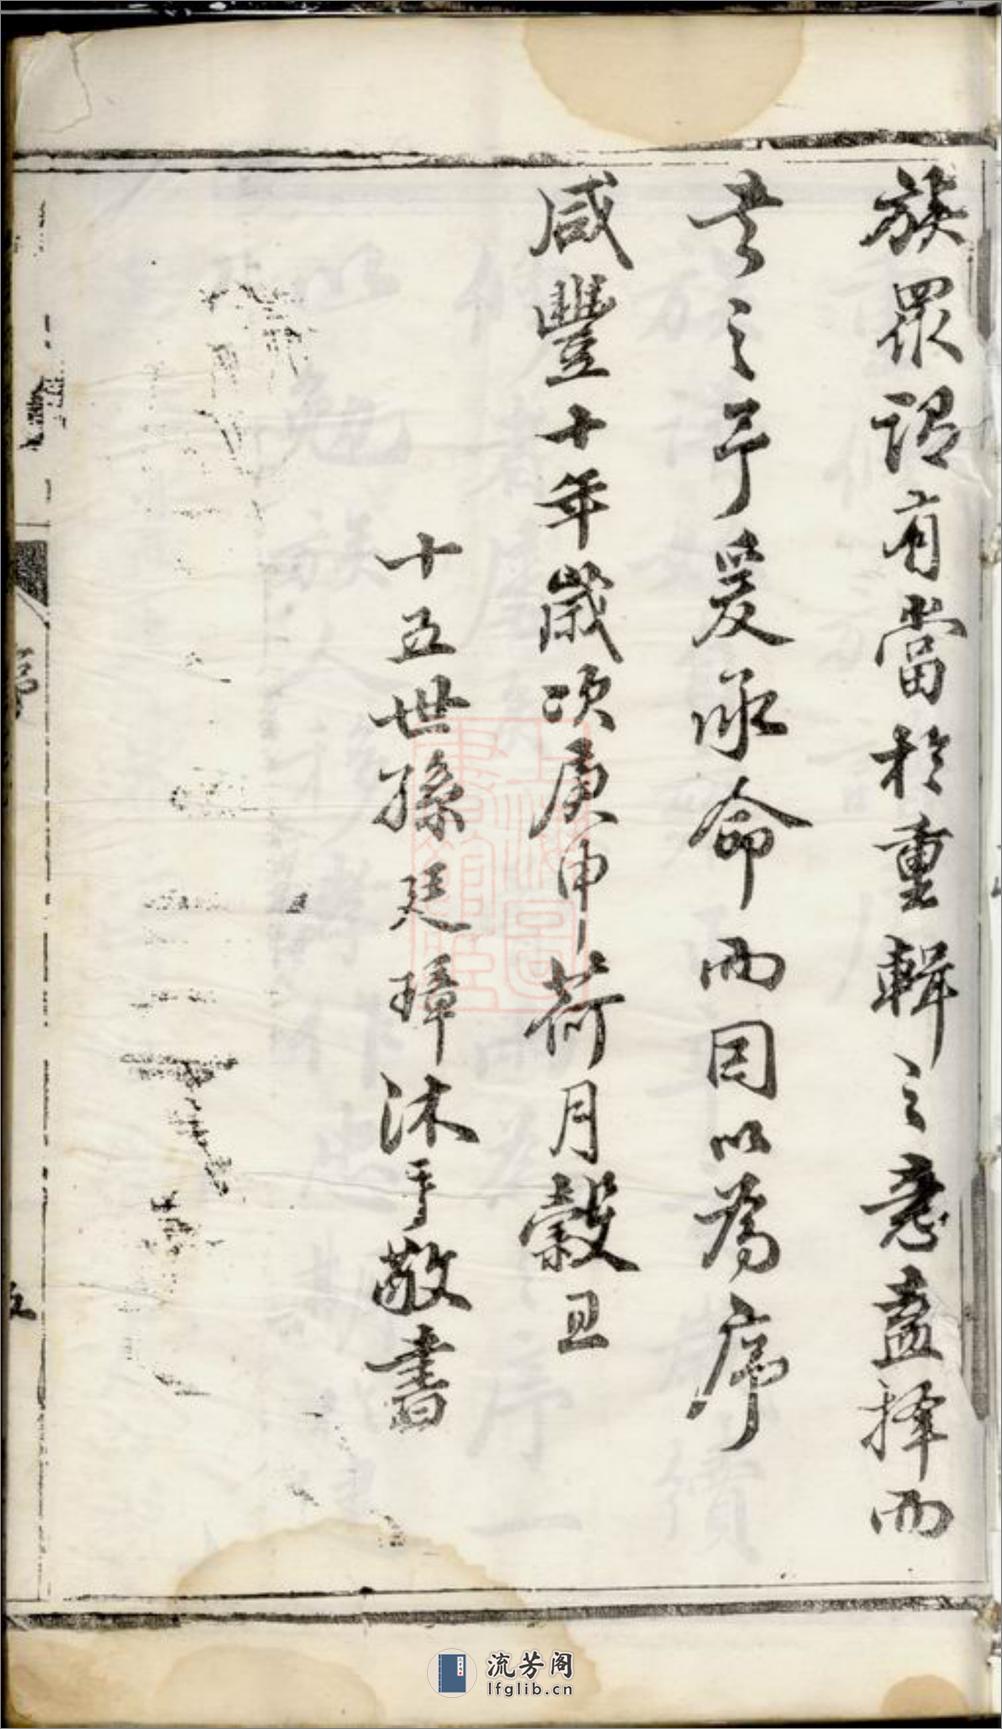 族眾謂有當於重輯之意盍擇而
書之予爰承命而因以為序
咸豐十年歲次庚申荷月穀旦
十五世孫廷璋沐手敬書
序
五
上海圖書館藏
流芳阁
lfglib.cn